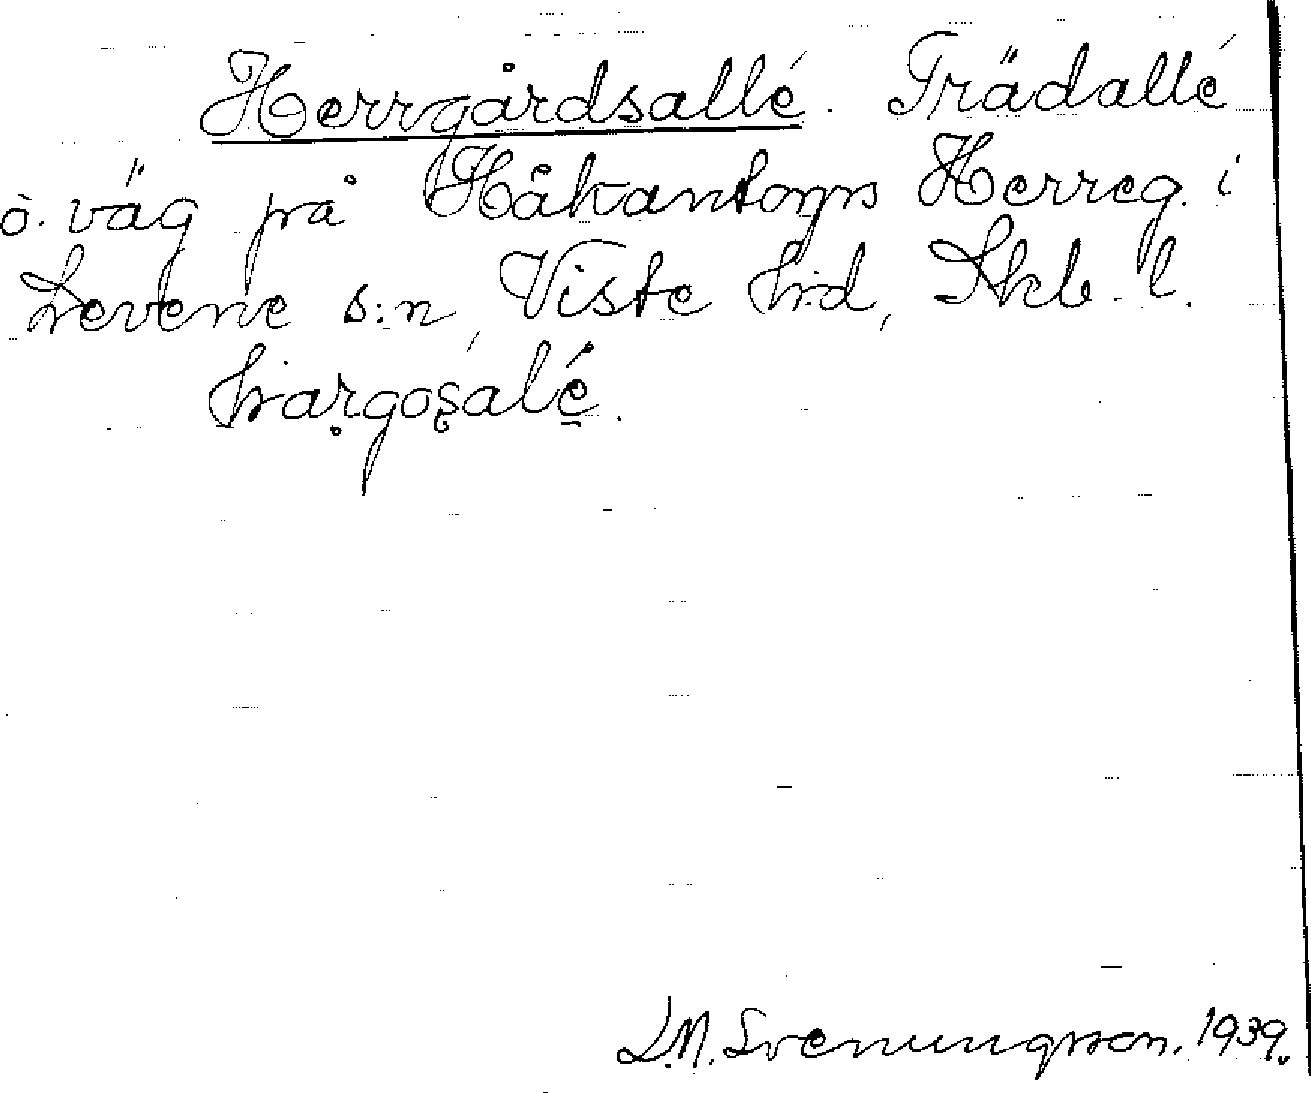 Herrgårdsallé. Trädallé
o. väg på Håkantorps Herreg. i
Levene s:n, Viste hd, Skb. l.
hargosalé.
L.M. Svenungsson. 1939.